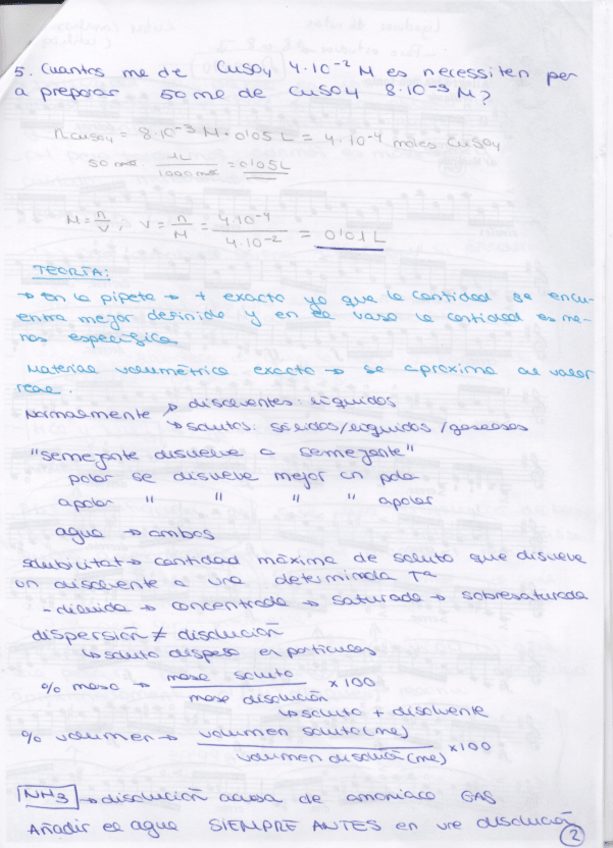 5. Cuantos ml de CuSO4 4·10⁻² M es necessiten per
a preparar 50 ml de CuSO4 8·10⁻³ M?
n CuSO4 = 8·10⁻³ M · 0'05 L = 4·10⁻⁴ moles CuSO4
50 ml · 1L / 1000 ml = 0'05 L
M = n/V ; V = n/M = 4·10⁻⁴ / 4·10⁻² = 0'01 L
TEORÍA:
→ En la pipeta → + exacto ya que la cantidad se encu-
entra mejor definida y en el vaso la cantidad es me-
nos específica
Material volumétrico exacto → se aproxima al valor
real.
Normalmente → disolventes: líquidos
↳ solutos: sólidos/líquidos/gaseosos
"semejante disuelve a semejante"
polar se disuelve mejor en polar
apolar " " " " apolar
agua → ambos
solubilitat → cantidad máxima de soluto que disuelve
un disolvente a una determinda Tª
- diluida → concentrada → saturada → sobresaturada
dispersión ≠ disolución
↳ soluto disperso en partículas
% masa → masa soluto / masa disolución x100
↳ soluto + disolvente
% volumen → volumen soluto (ml) / volumen disolución (ml) x100
NH3 → disolución acuosa de amoniaco GAS
Añadir el agua SIEMPRE ANTES en une disolución
2